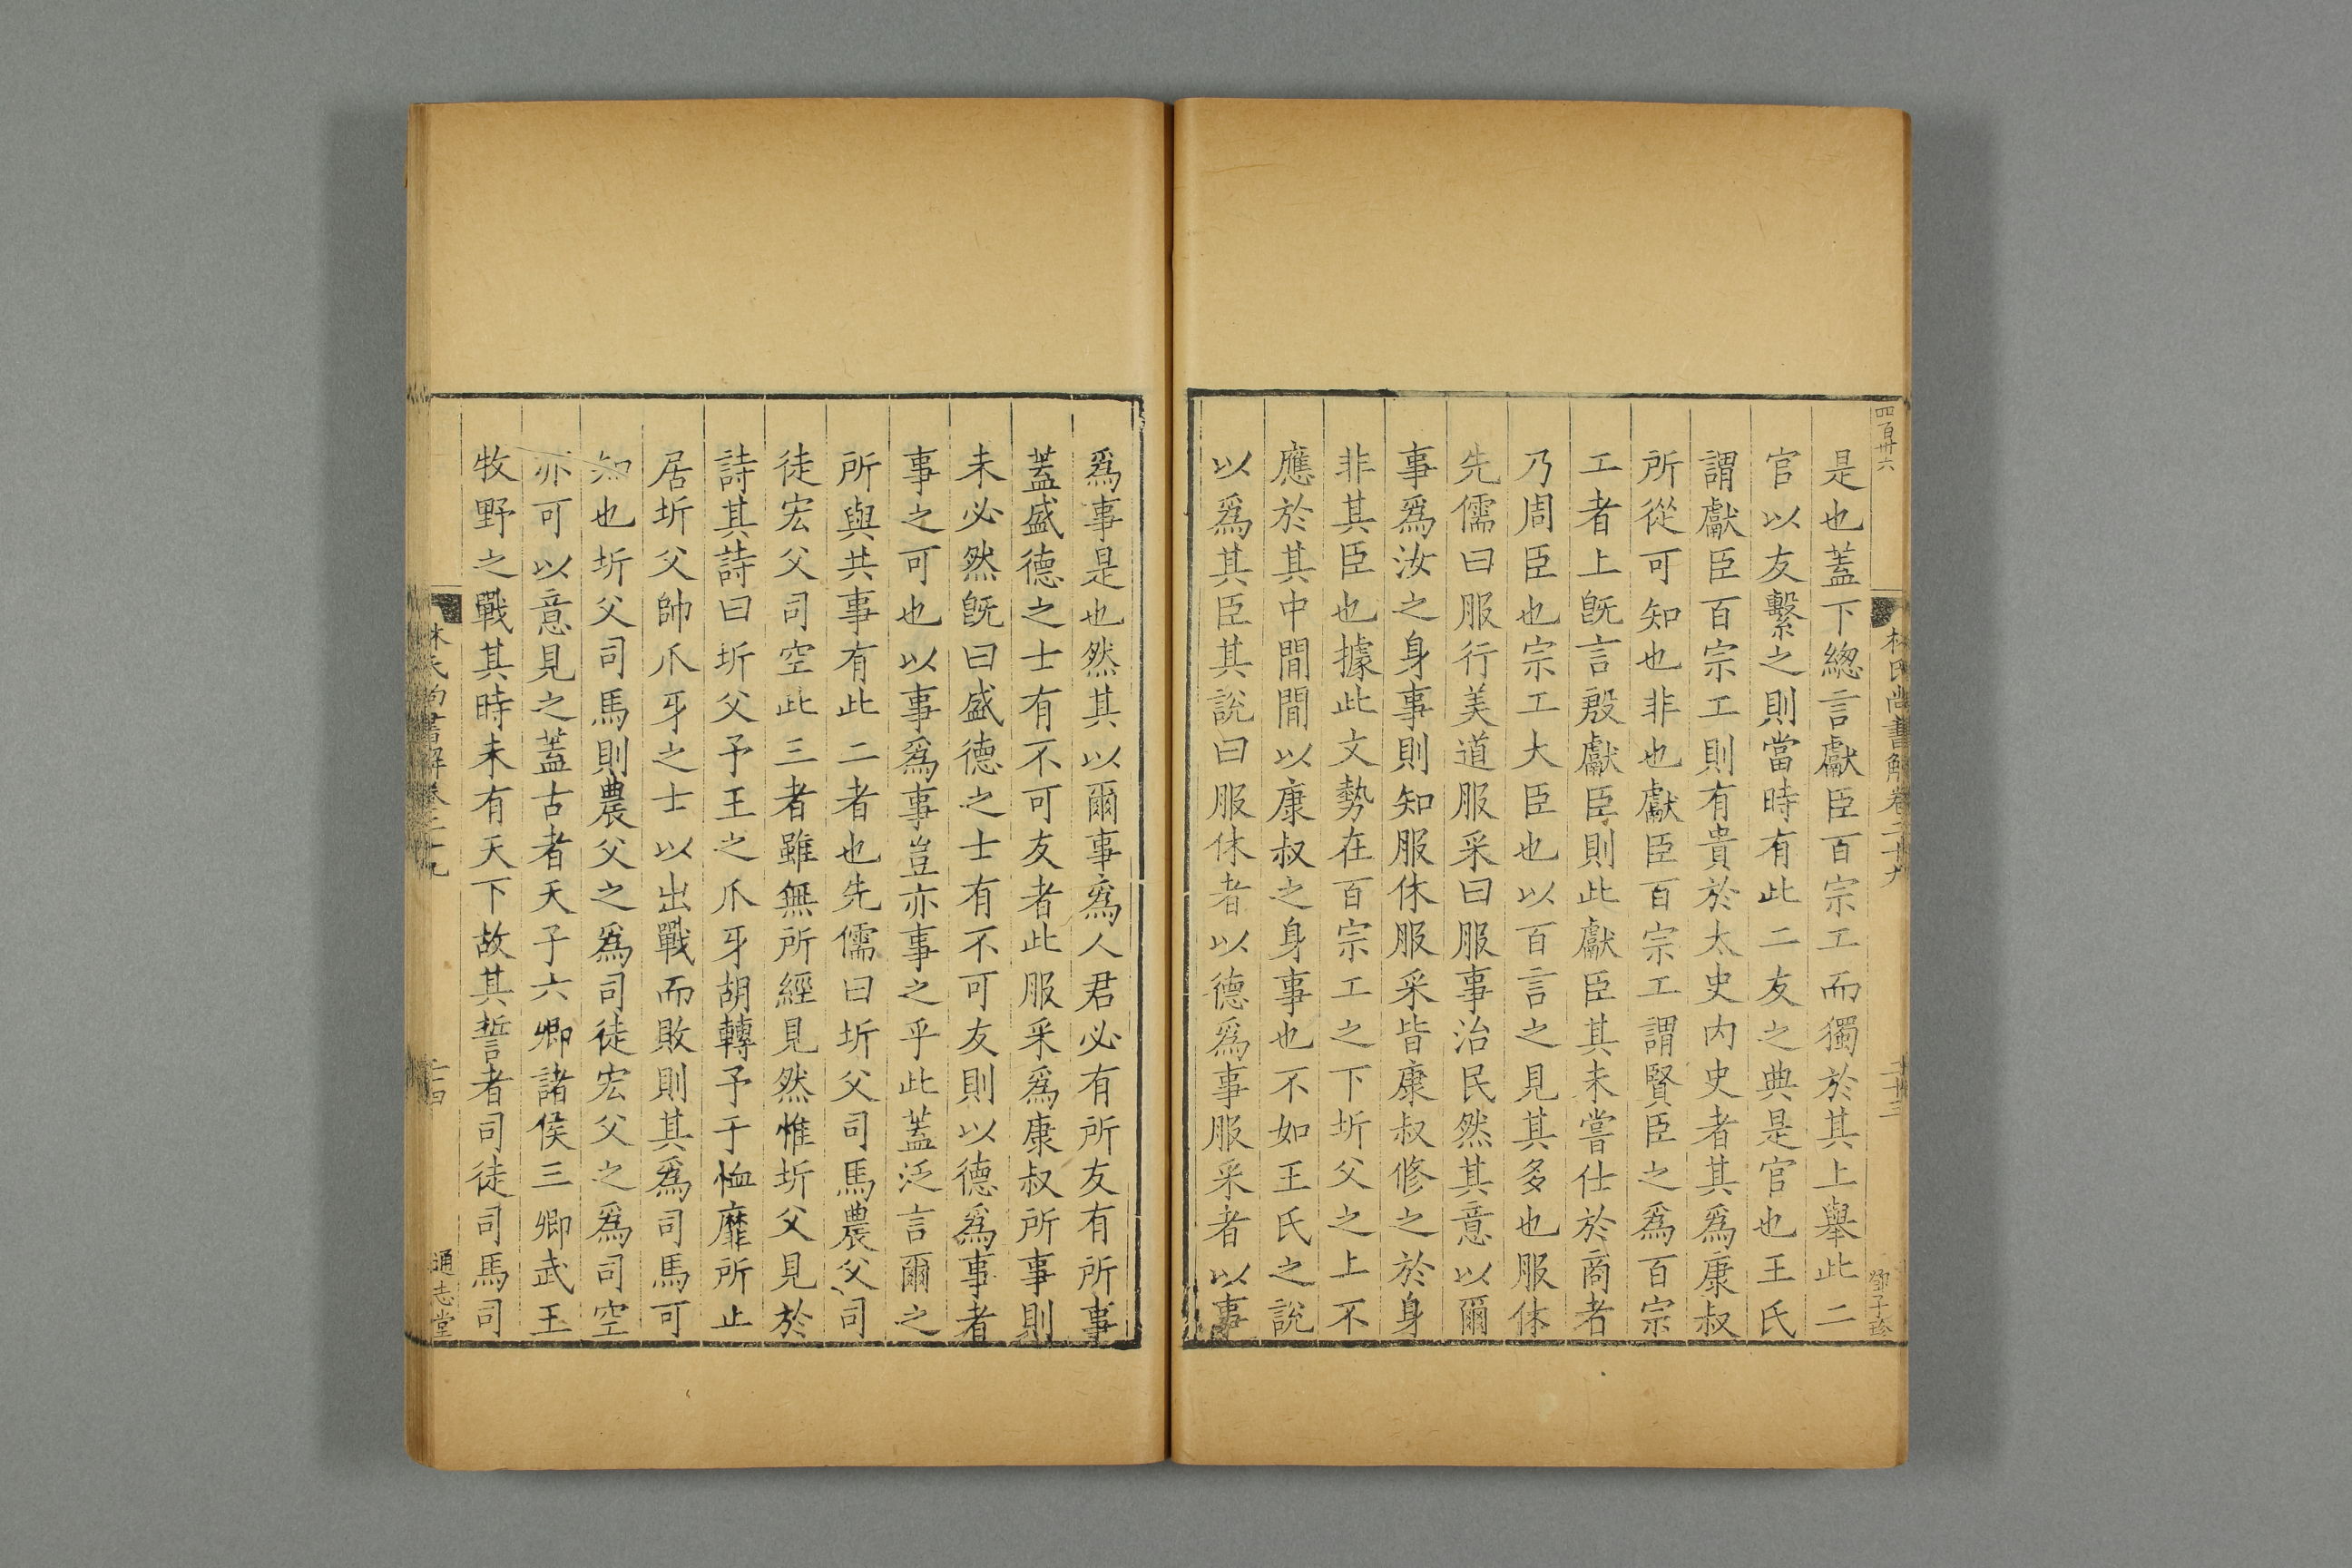 四百卅六
林氏尚書解卷二十九
二十三
鄧子珍
是也蓋下總言獻臣百宗工而獨於其上舉此二
官以友繫之則當時有此二友之典是官也王氏
謂獻臣百宗工則有貴於太史内史者其爲康叔
所從可知也非也獻臣百宗工謂賢臣之爲百宗
工者上旣言殷獻臣則此獻臣其未嘗仕於商者
乃周臣也宗工大臣也以百言之見其多也服休
先儒曰服行美道服采曰服事治民然其意以爾
事爲汝之身事則知服休服采皆康叔修之於身
非其臣也據此文勢在百宗工之下圻父之上不
應於其中間間以康叔之身事也不如王氏之說
以爲其臣其說曰服休者以德爲事服采者以事
爲事是也然其以爾事爲人君必有所友有所事
蓋盛德之士有不可友者此服采爲康叔所事則
未必然旣曰盛德之士有不可友則以德爲事者
事之可也以事爲事豈亦事之乎此蓋泛言爾之
所與共事有此二者也先儒曰圻父司馬農父司
徒宏父司空此三者雖無所經見然惟圻父見於
詩其詩曰圻父予王之爪牙胡轉予于恤靡所止
居圻父帥爪牙之士以出戰而敗則其爲司馬可
知也圻父司馬則農父之爲司徒宏父之爲司空
亦可以意見之蓋古者天子六卿諸侯三卿武王
牧野之戰其時未有天下故其誓者司徒司馬司
林氏尚書解卷二十九
二十四
通志堂